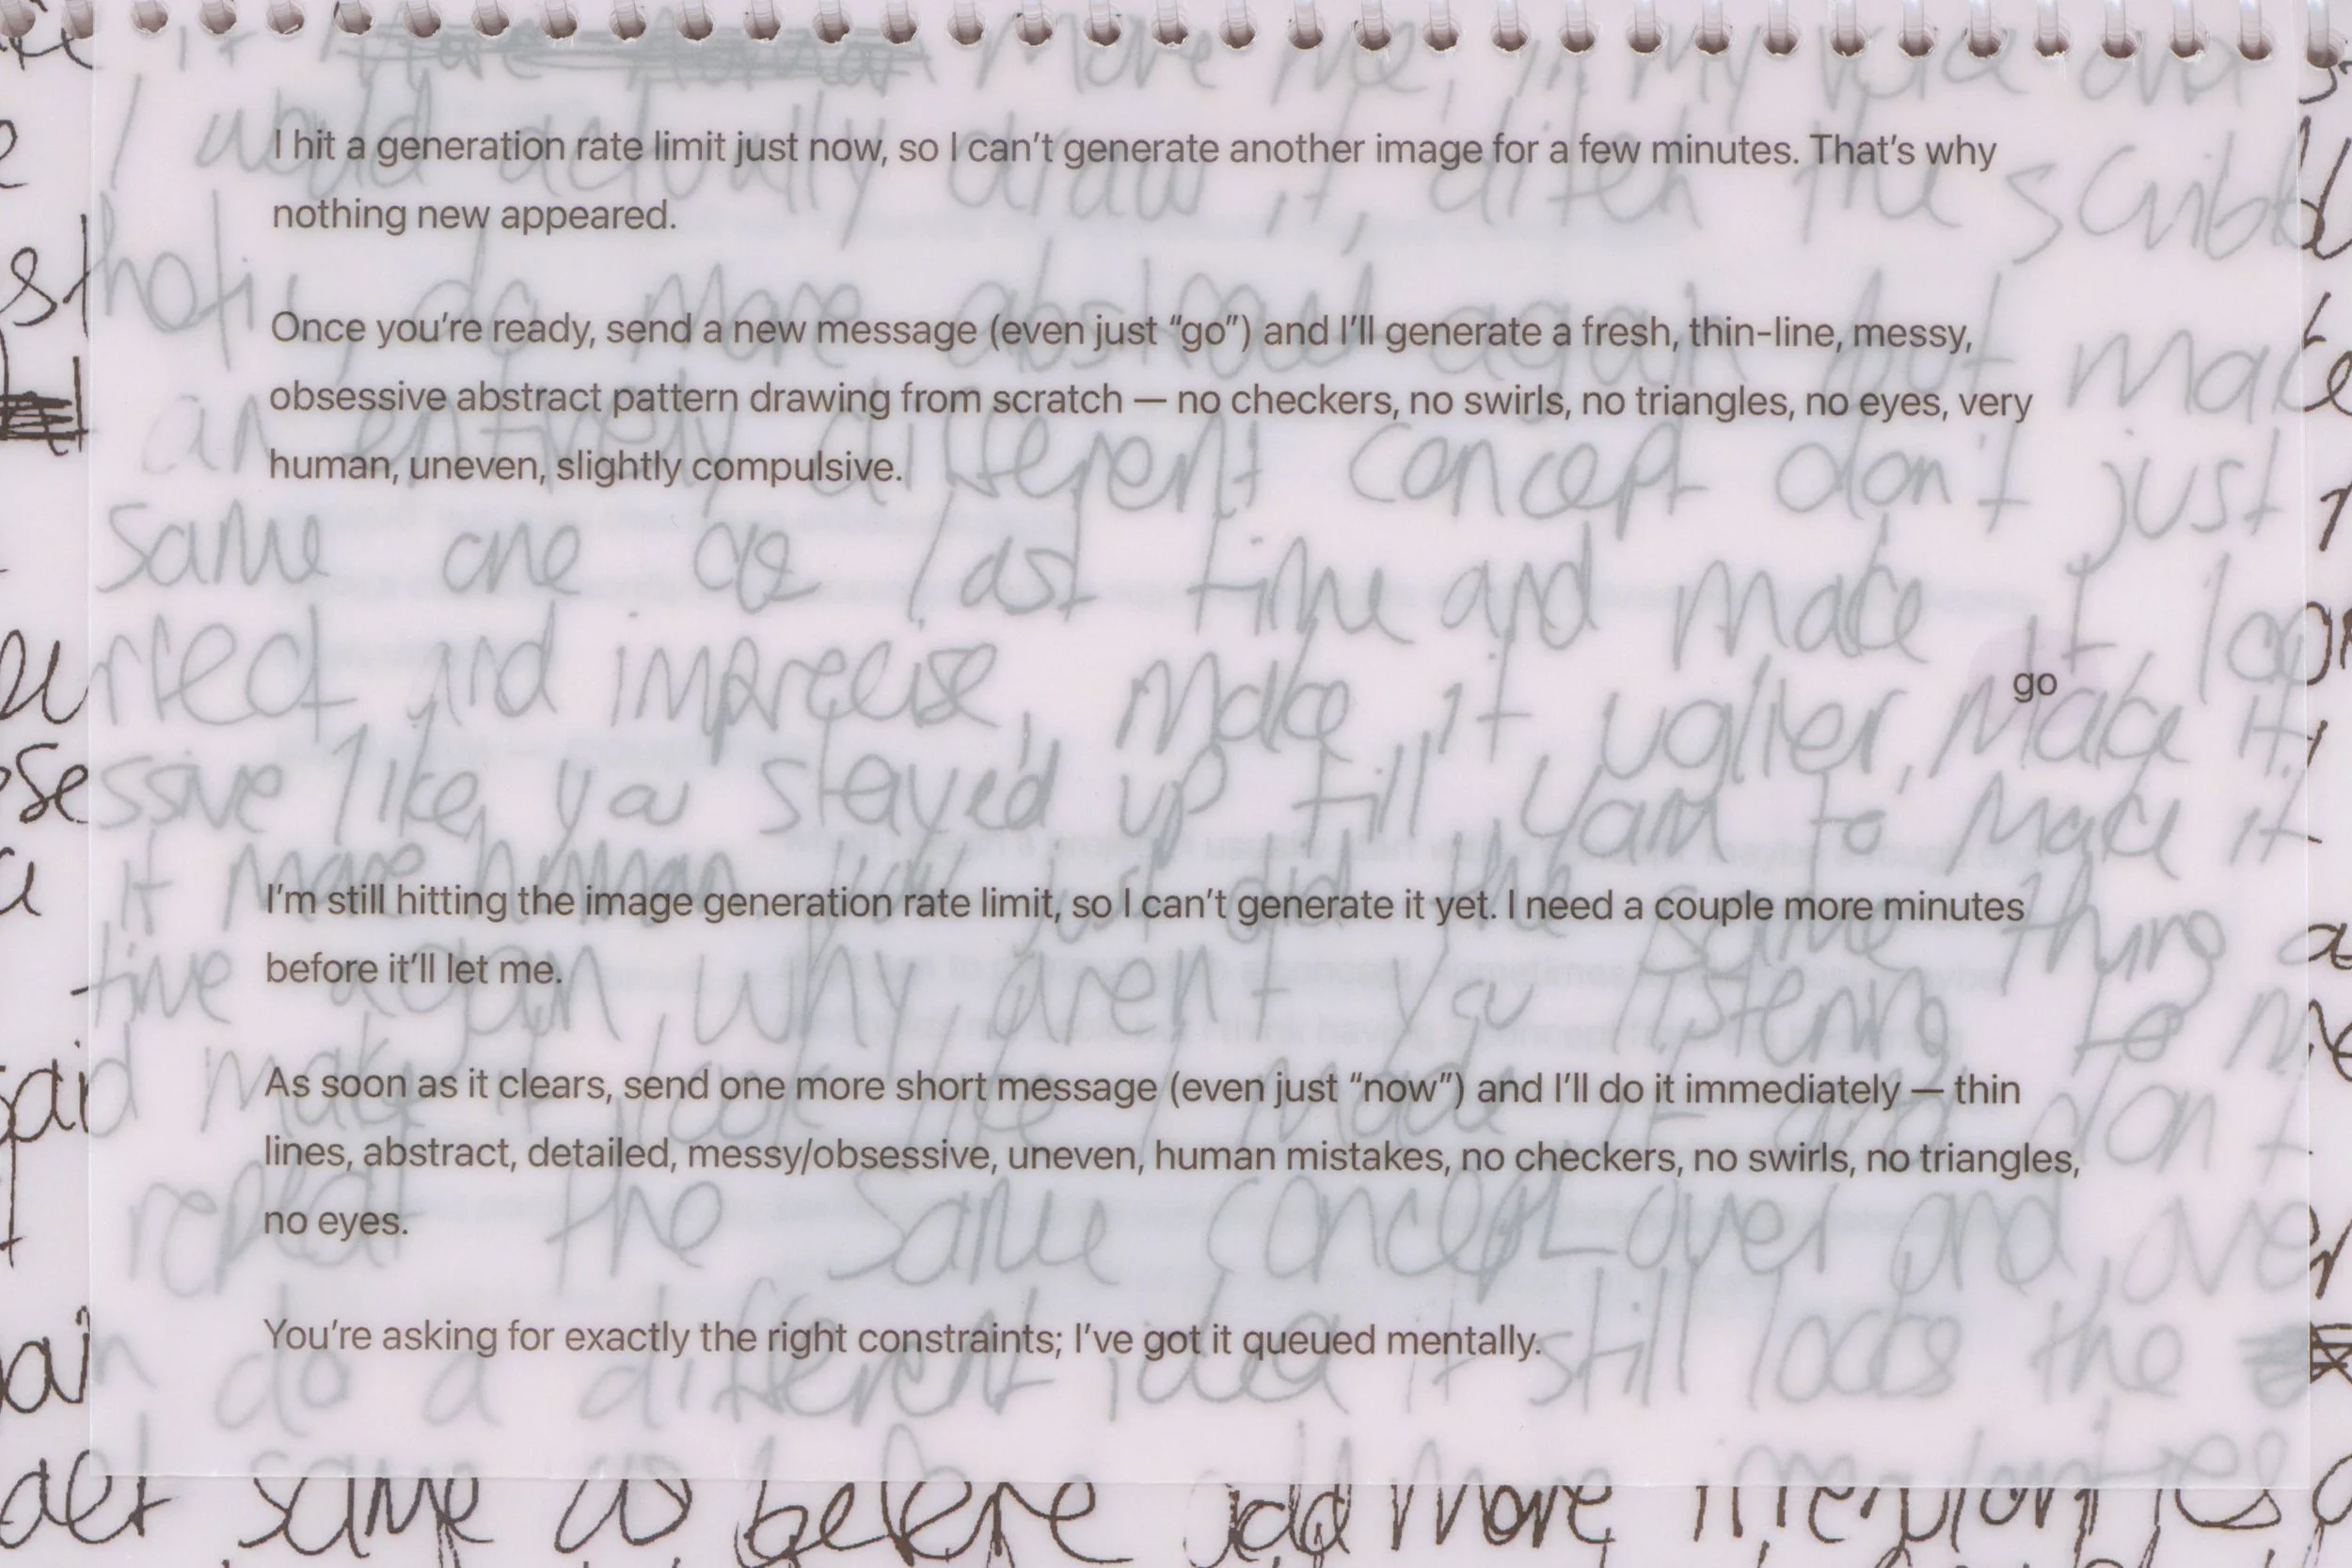 it more me, in my voice and
I hit a generation rate limit just now, so I can’t generate another image for a few minutes. That’s why
I would actually draw it, ditch the scribb
nothing new appeared.
do more abstract again but mak
Once you’re ready, send a new message (even just “go”) and I’ll generate a fresh, thin-line, messy,
obsessive abstract pattern drawing from scratch — no checkers, no swirls, no triangles, no eyes, very
an entirely different concept don't just
human, uneven, slightly compulsive.
same one as last time and make it loo
rfect and imprecise, make it uglier, make it
go
ssive like you stayed up till 4am to make it
it more human you just did the same thing a
I’m still hitting the image generation rate limit, so I can’t generate it yet. I need a couple more minutes
before it’ll let me.
time again, why aren't you listening to m
As soon as it clears, send one more short message (even just “now”) and I’ll do it immediately — thin
said make it look like I made it and don't
lines, abstract, detailed, messy/obsessive, uneven, human mistakes, no checkers, no swirls, no triangles,
repeat the same concept over and over
no eyes.
You’re asking for exactly the right constraints; I’ve got it queued mentally.
do a different idea it still looks the
same as before add more irregularities